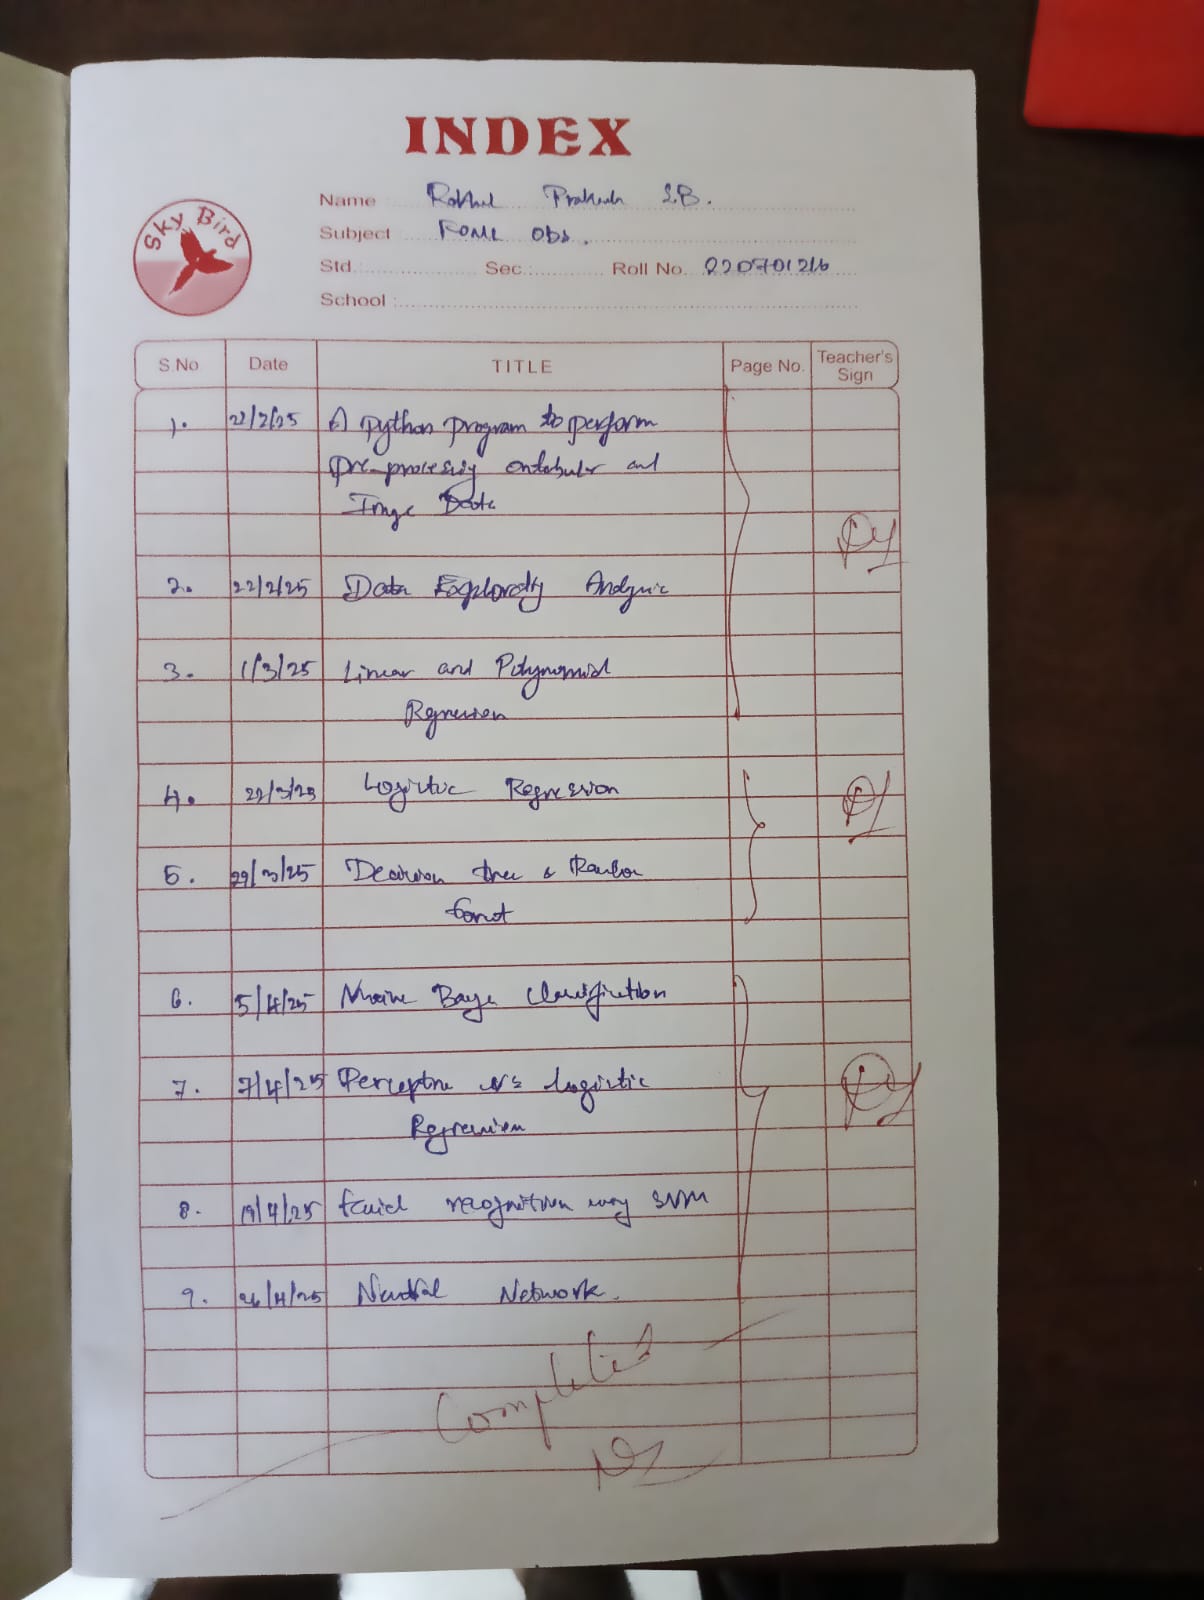 INDEX
Sky Bird
Name Prakash S.B.
Subject FOML Obs.
Std. Sec. Roll No. 220701216
School :
S.No Date TITLE Page No. Teacher's Sign
1. 22/2/25 A python program to perform
pre-processing on tabular and
Image Data
2. 22/2/25 Data Exploratory Analysis
3. 1/3/25 Linear and Polynomial
Regression
4. 22/3/25 Logistic Regression
5. 29/3/25 Decision tree & Random
forest
6. 5/4/25 Bayes Classification
7. 7/4/25 vs logistic
Regression
8. 19/4/25 recognition using SVM
9. 26/4/25 Network.
Completed